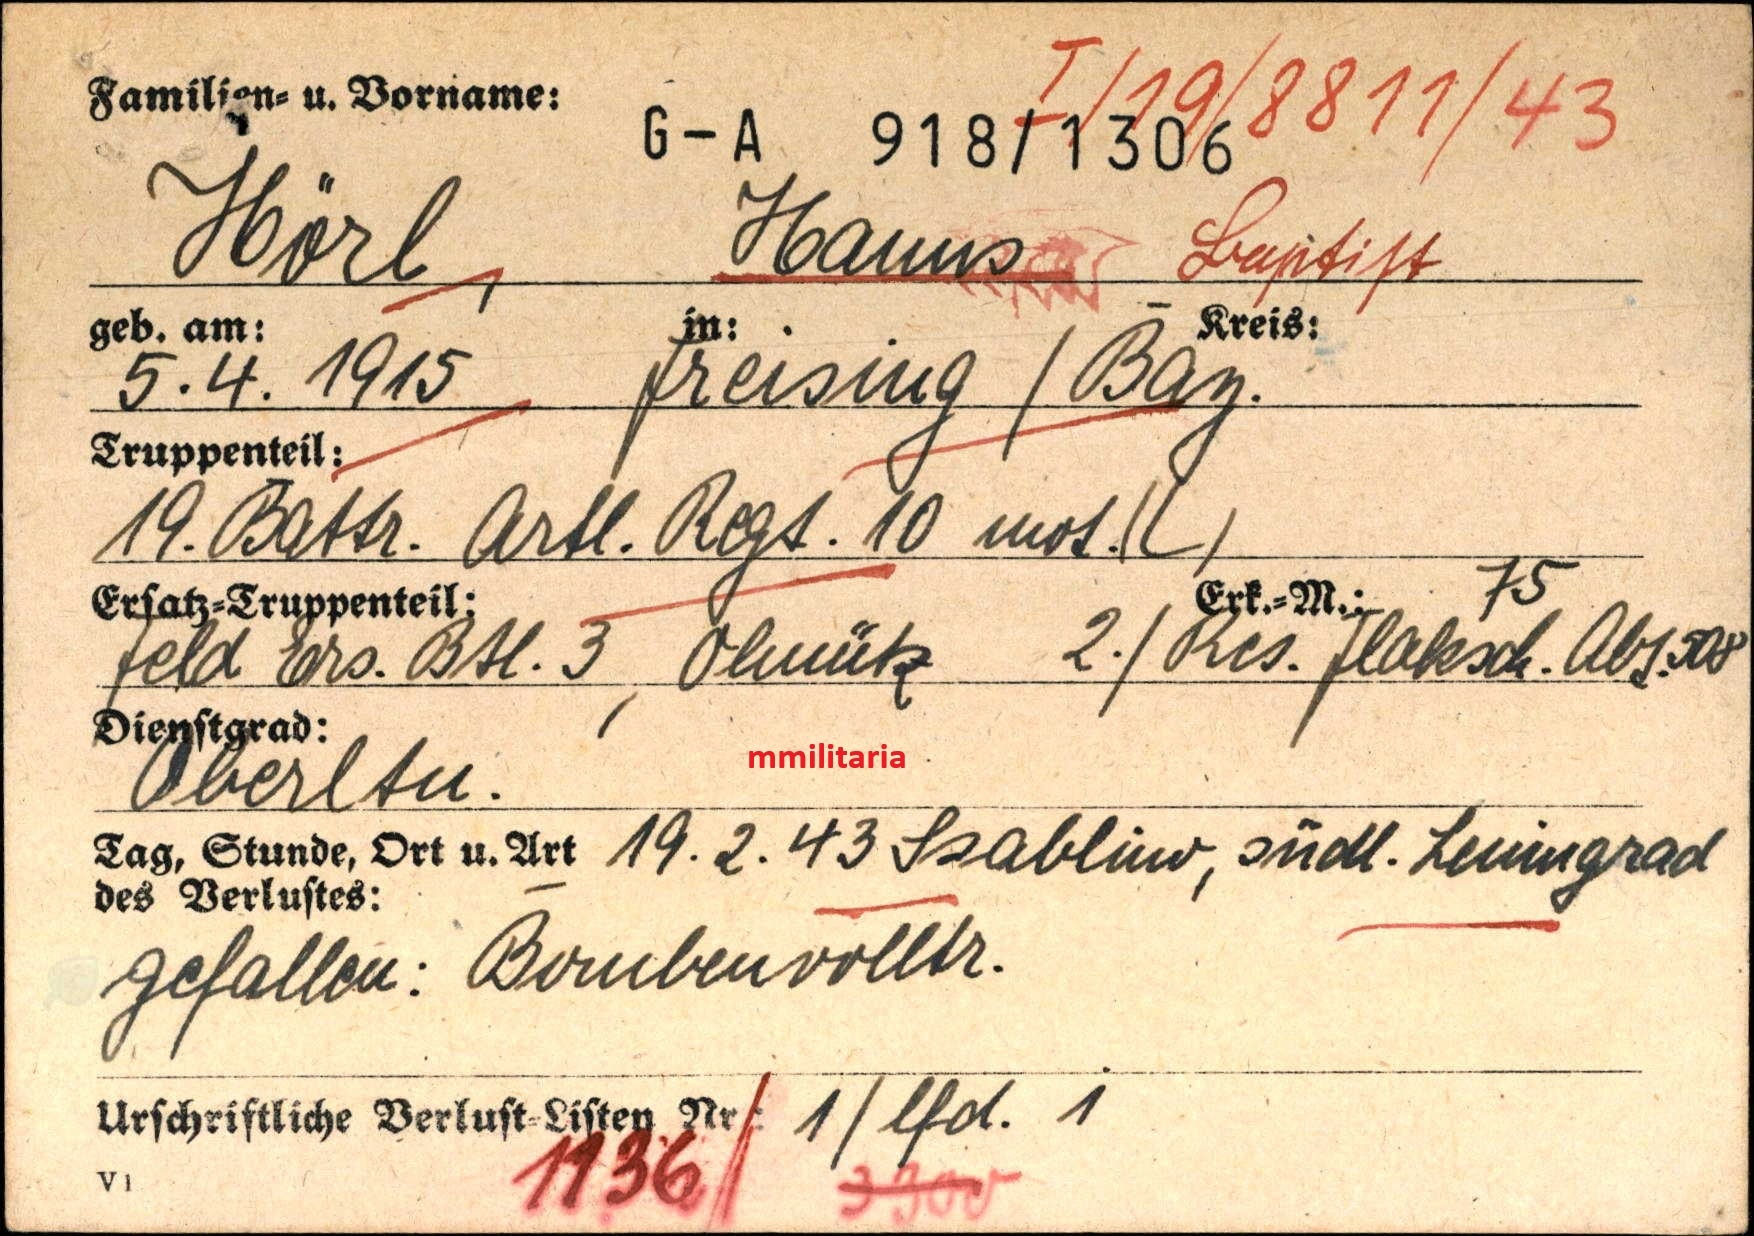 Familien- u. Vorname:
G-A 918/1306
I/19/8811/43
Hörl, Hanns Baptist
geb. am: in: Kreis:
5.4.1915 Freising / Bay.
Truppenteil:
19. Battr. Artl. Regt. 10 mot. (L)
Ersatz-Truppenteil: Erk.-M.: 75
Feld Ers. Btl. 3, Olmütz 2./ Res. Flaksch. Abt. 508
Dienstgrad:
Oberltn.
mmilitaria
Tag, Stunde, Ort u. Art 19.2.43 Ssablino, südl. Leningrad
des Verlustes:
gefallen: Bombenvolltr.
Urschriftliche Verlust-Listen Nr.: 1/ lfd. 1
V 1
1136/